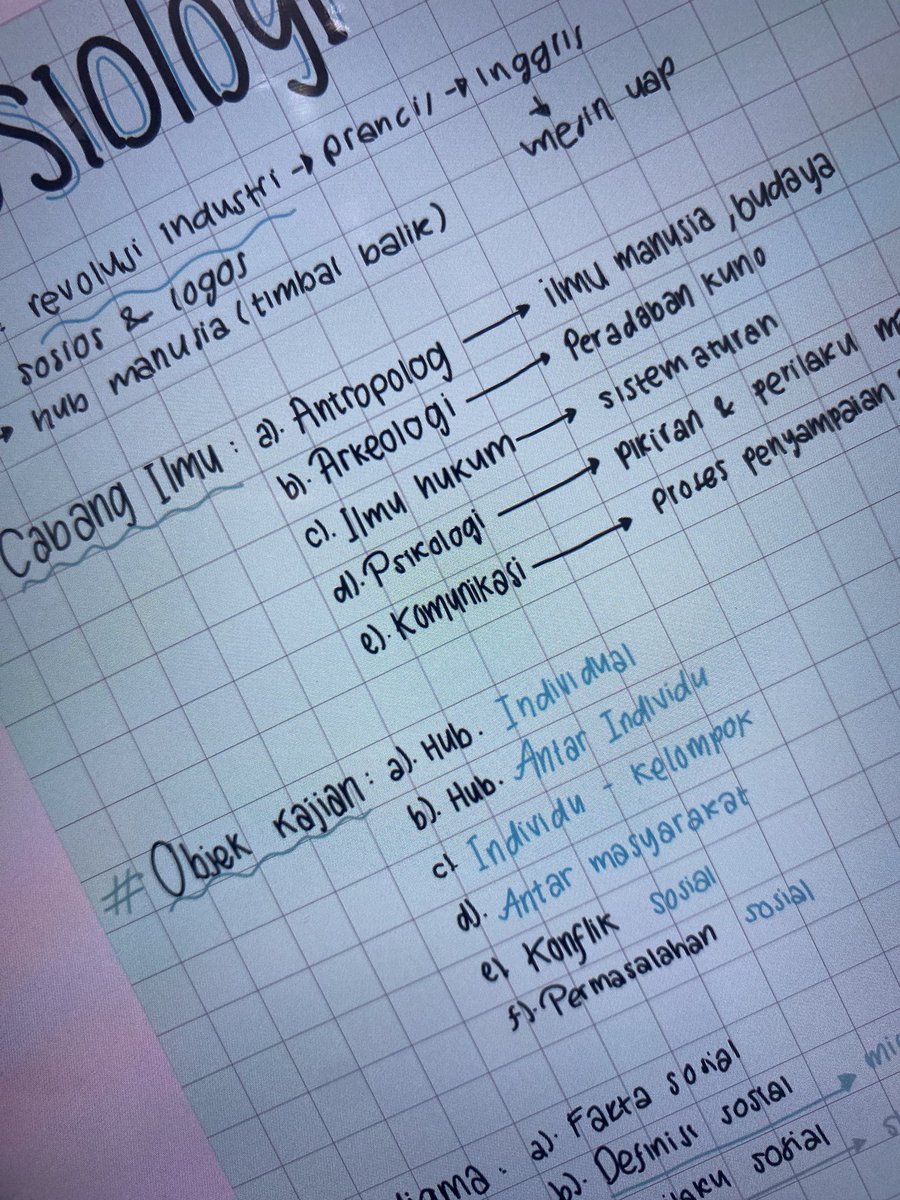 osiologi
revolusi industri → prancis → inggris
↓
mesin uap
sosios & logos
→ hub manusia (timbal balik)
Cabang Ilmu : a). Antropolog → ilmu manusia, budaya
b). Arkeologi → Peradaban kuno
c). Ilmu hukum → sistem aturan
d). Psikologi → pikiran & perilaku m
e). Komunikasi → proses penyampaian
# Objek kajian : a). Hub. Individual
b). Hub. Antar Individu
c). Individu - kelompok
d). Antar masyarakat
e). Konflik sosial
f). Permasalahan sosial
a). Fakta sosial
b). Definisi sosial → mi
laku sosial →